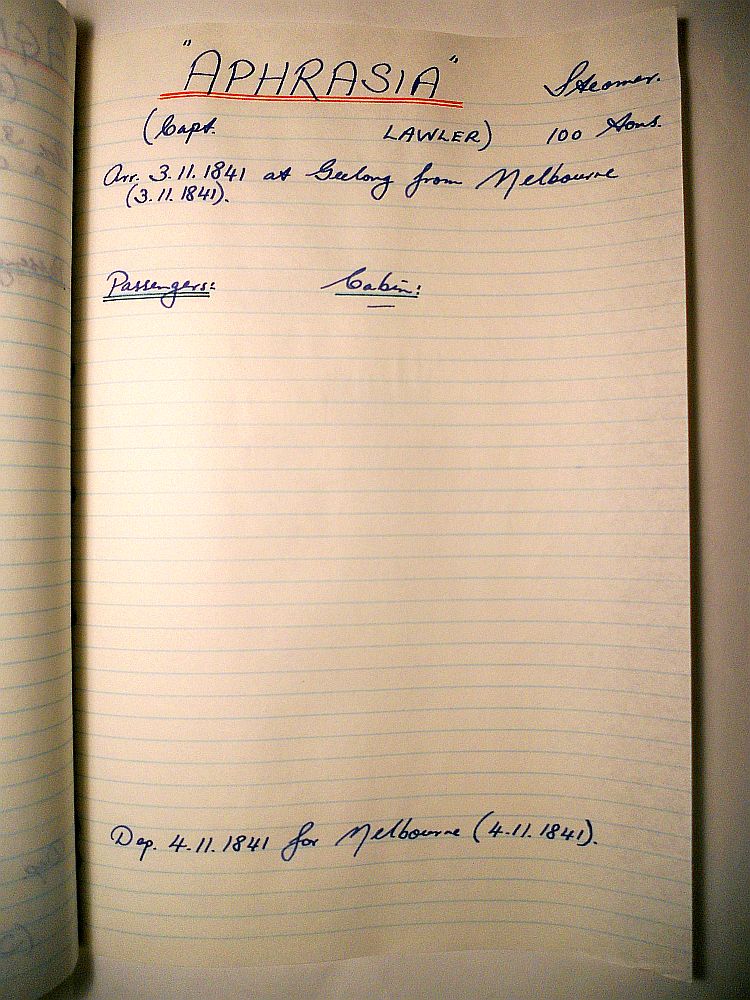 "APHRASIA" Steamer.
(Capt. LAWLER) 100 Tons.
Arr. 3.11.1841 at Geelong from Melbourne
(3.11.1841).
Passengers: Cabin:
Dep. 4.11.1841 for Melbourne (4.11.1841).